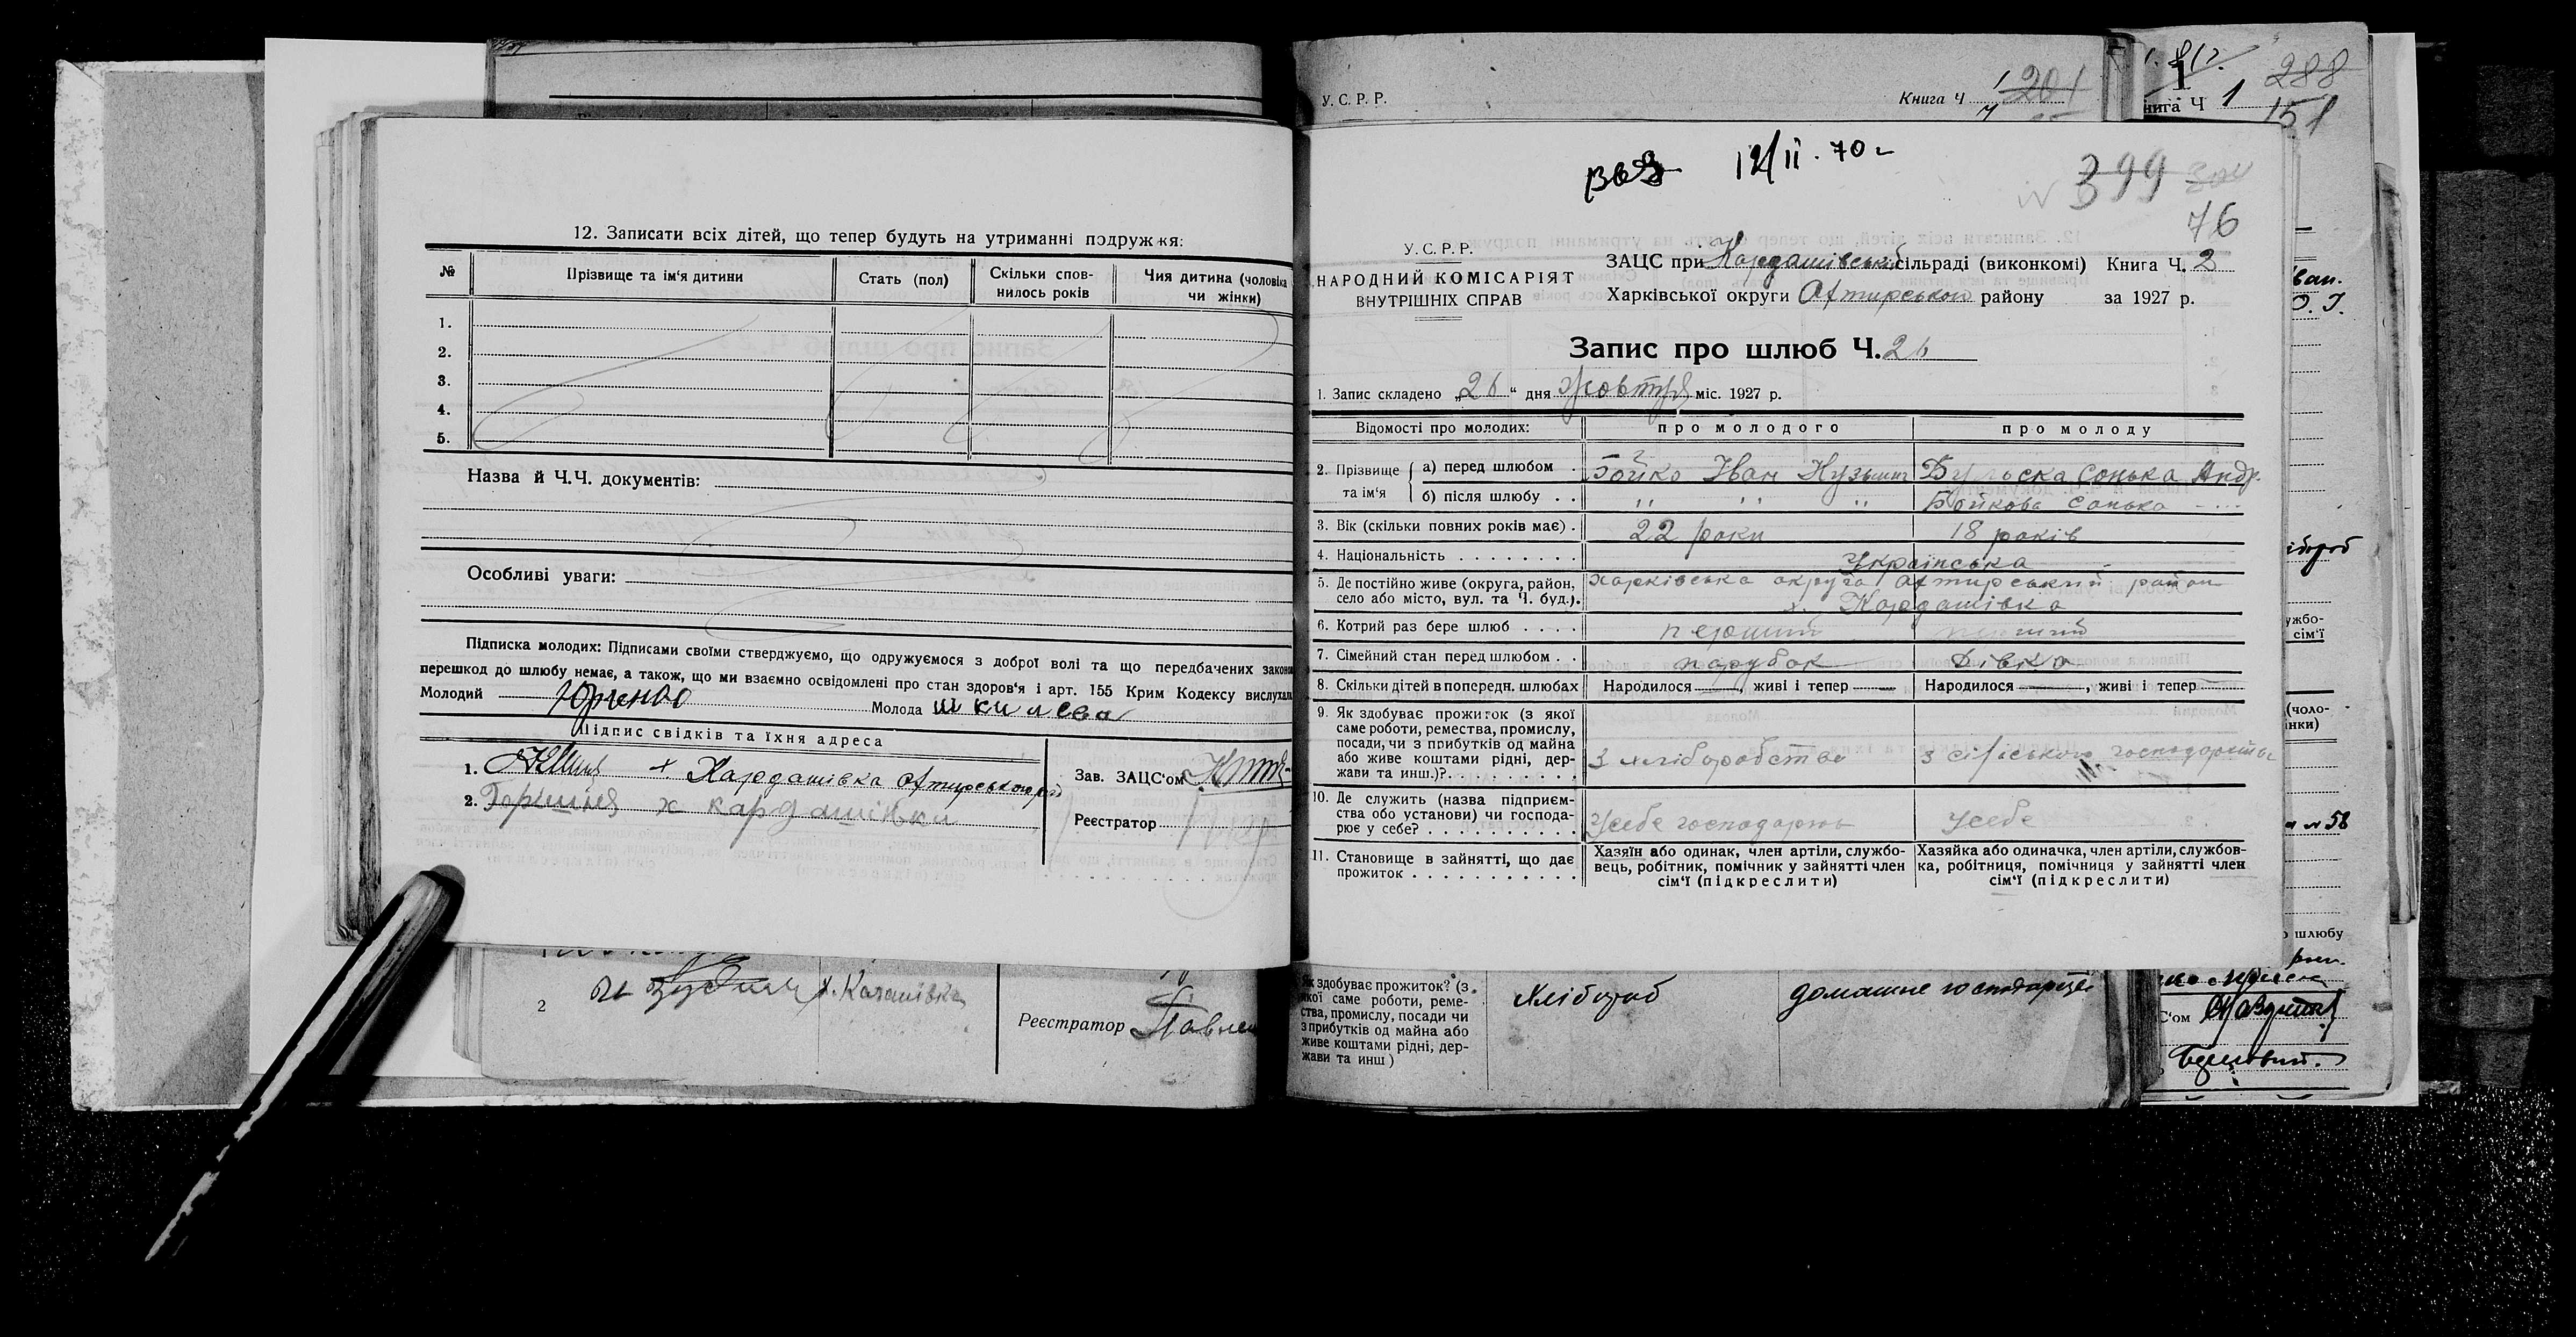 12. Записати всіх дітей, що тепер будуть на утриманні подружжя:
№ Прізвище та ім'я дитини Стать (пол) Скільки спов- нилось років Чия дитина (чоловіка чи жінки)
1.
2.
3.
4.
5.
Назва й Ч.Ч. документів:
Особливі уваги:
Підписка молодих: Підписами своїми стверджуємо, що одружуємося з доброї волі та що передбачених законом
перешкод до шлюбу немає, а також, що ми взаємно освідомлені про стан здоров'я і арт. 155 Крим Кодексу вислухали
Молодий Молода
Підпис свідків та їхня адреса
1. х Кардашівка Охтирського р
2. х кардашівки
Зав. ЗАЦС'ом
Реєстратор
2 х.
Реєстратор
У.С.Р.Р. Книга Ч 201
288
нига Ч 1 151
12/II.70 г
399
76
У.С.Р.Р.
НАРОДНИЙ КОМІСАРІЯТ
ВНУТРІШНІХ СПРАВ
ЗАЦС при Кардашівській сільраді (виконкомі) Книга Ч. 2
Харківської округи Охтирського району за 1927 р.
Запис про шлюб Ч. 26
1. Запис складено „26" дня Жовтня міс. 1927 р.
Відомості про молодих: про молодого про молоду
2. Прізвище та ім'я а) перед шлюбом . Бойко Іван Кузьмич сонька Андр.
б) після шлюбу . . " " " Бойкова Сонька
3. Вік (скільки повних років має) . 22 роки 18 років
4. Національність . . . . . . . . Українська
5. Де постійно живе (округа, район, село або місто, вул. та Ч. буд.). харківська округа Охтирський район
х. Кардашівка
6. Котрий раз бере шлюб . . . . перший перший
7. Сімейний стан перед шлюбом . . парубок Дівка
8. Скільки дітей в попередн. шлюбах Народилося —, живі і тепер — Народилося —, живі і тепер
9. Як здобуває прожиток (з якої
саме роботи, ремества, промислу,
посади, чи з прибутків од майна
або живе коштами рідні, дер-
жави та инш.)?. . . . . . . . . . З хліборобства з сільського господарства
10. Де служить (назва підприєм-
ства обо установи) чи господа-
рює у себе? . . . . . . . . . . . Усебе господарює Усебе
11. Становище в зайнятті, що дає
прожиток . . . . . . . . . . . .
Хазяїн або одинак, член артіли, службо-
вець, робітник, помічник у зайнятті член
сім'ї (підкреслити)
Хазяйка або одиначка, член артіли, службов-
ка, робітниця, помічниця у зайнятті член
сім'ї (підкреслити)
Як здобуває прожиток? (з
якої саме роботи, реме-
ства, промислу, посади чи
з прибутків од майна або
живе коштами рідні, дер-
жави та инш)
Хлібороб домашнє господарство